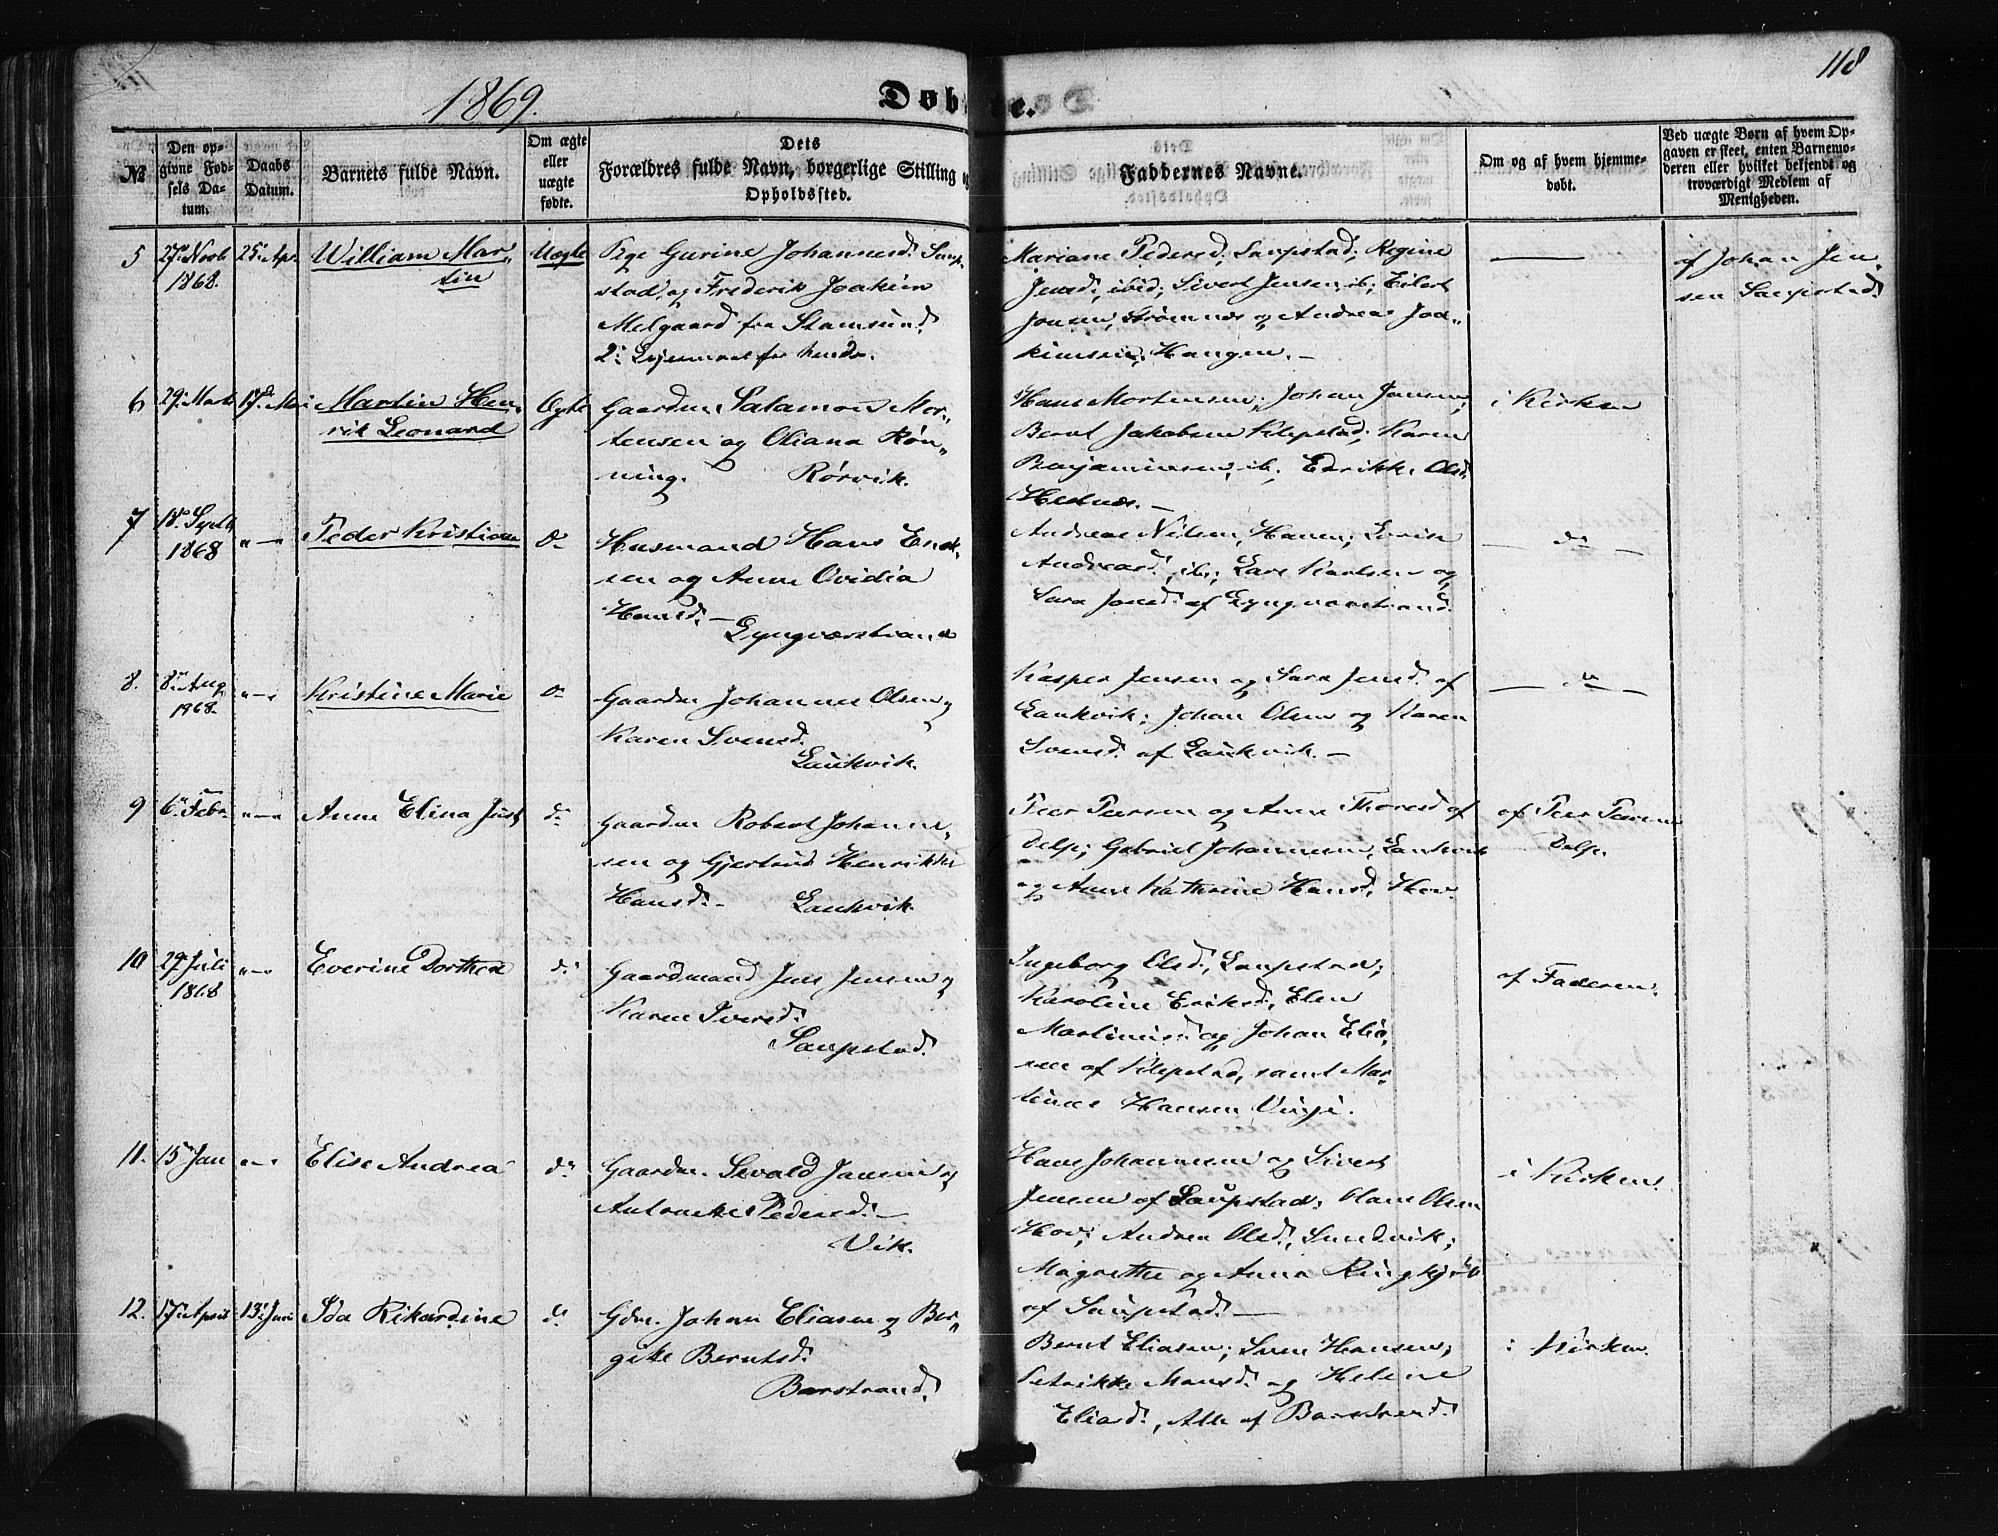 118
1869.
Døbte.
№
Den opgivne Fødsels Datum.
Daabs Datum.
Barnets fulde Navn.
Om ægte eller uægte fødte.
Dets Forældres fulde Navn, borgerlige Stilling og Opholdssted.
Faddernes Navne.
Om og af hvem hjemmedøbt.
Ved uægte Børn af hvem Opgaven er skeet, enten Barnemoderen eller hvilket bekjendt og troværdigt Medlem af Menigheden.
5 27. Novb 1868. 25. Apr. William Mar-
tin
Uægte
Pige Gurine Johannesd. Laup-
stad, og Frederik Joakim
Melgaard fra Stamsund.
2. Leiermaal for hende.
Mariane Pedersd, Laupstad; Regine
Jensd., ibid; Sivert Jensen, ib; Eilert
Jonsen, Strømnes og Andreas Joa-
kimsen, Haugen. –
—
af Johan Jen-
sen Laupstad.
6 29. Marts 17. Mai Martin Hen-
rik Leonard
Ægte
Gaardm. Salamon Mor-
tensen og Oliana Røn-
ning. Rørvik.
Hans Mortensen, Johan Jansen,
Bernt Jakobsen Klepstad; Karen
Benjaminsen, ib; Edrikke Olsd.
Hestnæs. –
i Kirken
7 18. Septb 1868 " — " Peder Kristian
do
Husmand Hans Enok-
sen og Anne Ovidia
Hansd. –
Lyngværstrand
Andreas Nilsen, Hanen;
Andreasd., ib; Lars Karlsen og
Sara Jensd. af Lyngværstrand.
— do —
8. 8. Aug 1968. " — " Kristine Marie
do
Gaardm Johannes Olsen og
Karen Svensd.
Laukvik.
Kasper Jensen og Sara Jensd. af
Laukvik; Johan Olsen og Karen
Svensd. af Laukvik. –
— do —
9 6. Febr " — " Anne Elina Just
do
Gaardm Robert Johanne-
sen og Gjertrud Henrikke
Hansd. – Laukvik.
Peer Peersen og Anne Thoresd af
Delp; Gabriel Johannesen, Laukvik
og Anne Kathrine Hansd, Hov.
af Peer Peersen
Delp.
10 29. Juli 1868 " — " Everine Dorthea
do
Gaardmand Jens Jensen og
Karen Iversd.
Laupstad.
Ingeborg Olsd., Laupstad;
Karoline Eriksd., Elen
Martinusd. og Johan Elia-
sen af Klepstad, samt Mar-
tinus Hansen Vinje.
af Faderen.
11. 15. Jan " — " Elise Andrea
do
Gaardm. Sevald Jansen og
Antonette Pedersd. –
Vik.
Hans Johannesen og Sivert
Jensen af Laupstad; Olane Olsen
Hov; Andrea Olsd., Sundsvik;
Magrethe og Anna Ringkjøb
af Laupstad. –
i Kirken.
12. 17. April 13. Juni Ida Rikardine
do
Gdm. Johan Eliasen og Ber-
gitte Berntsd.
Barstrand.
Bernt Eliasen; Sven Hansen;
Petrikke Monsd. og Helene
Eliasd., Alle af Barstrand.
i Kirken.